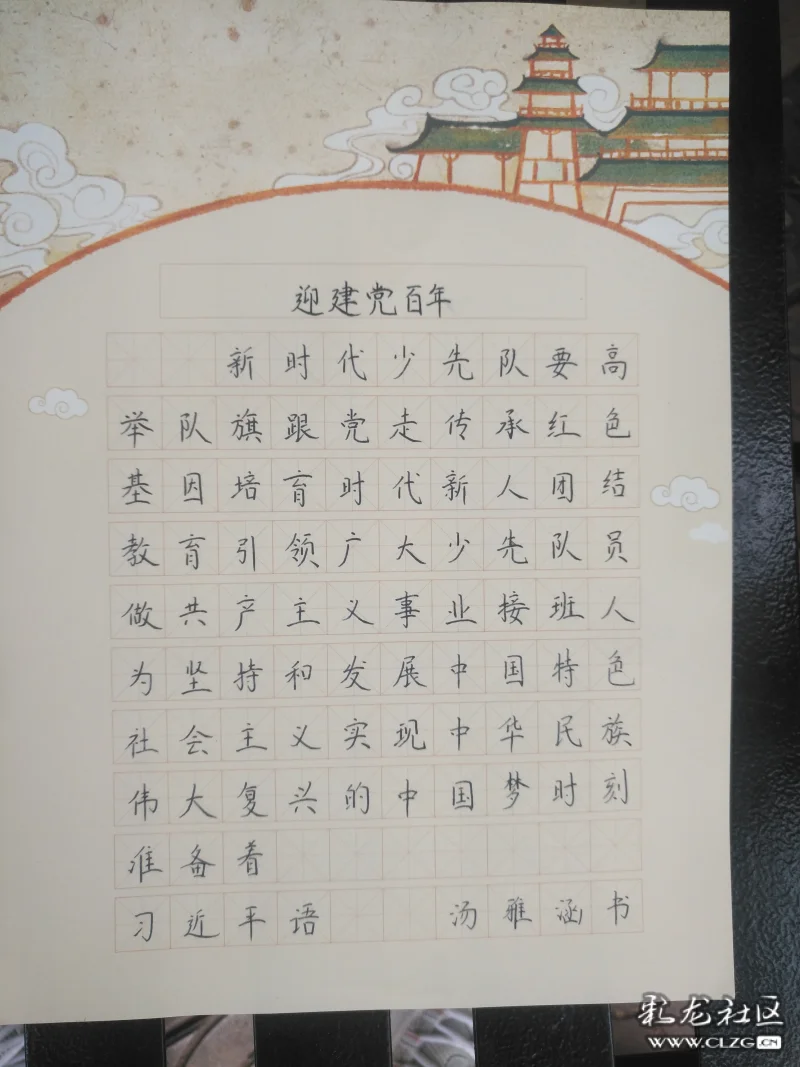 迎建党百年
新时代少先队要高
举队旗跟党走传承红色
基因培育时代新人团结
教育引领广大少先队员
做共产主义事业接班人
为坚持和发展中国特色
社会主义实现中华民族
伟大复兴的中国梦时刻
准备着
习近平语 汤雅涵书
彩龙社区
www.CLZG.CN